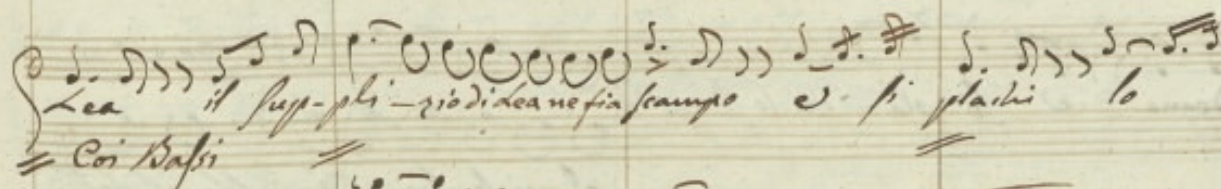 Lea il sup-pli-zio di Lea ne fia scampo e si plachi lo
Coi Bassi